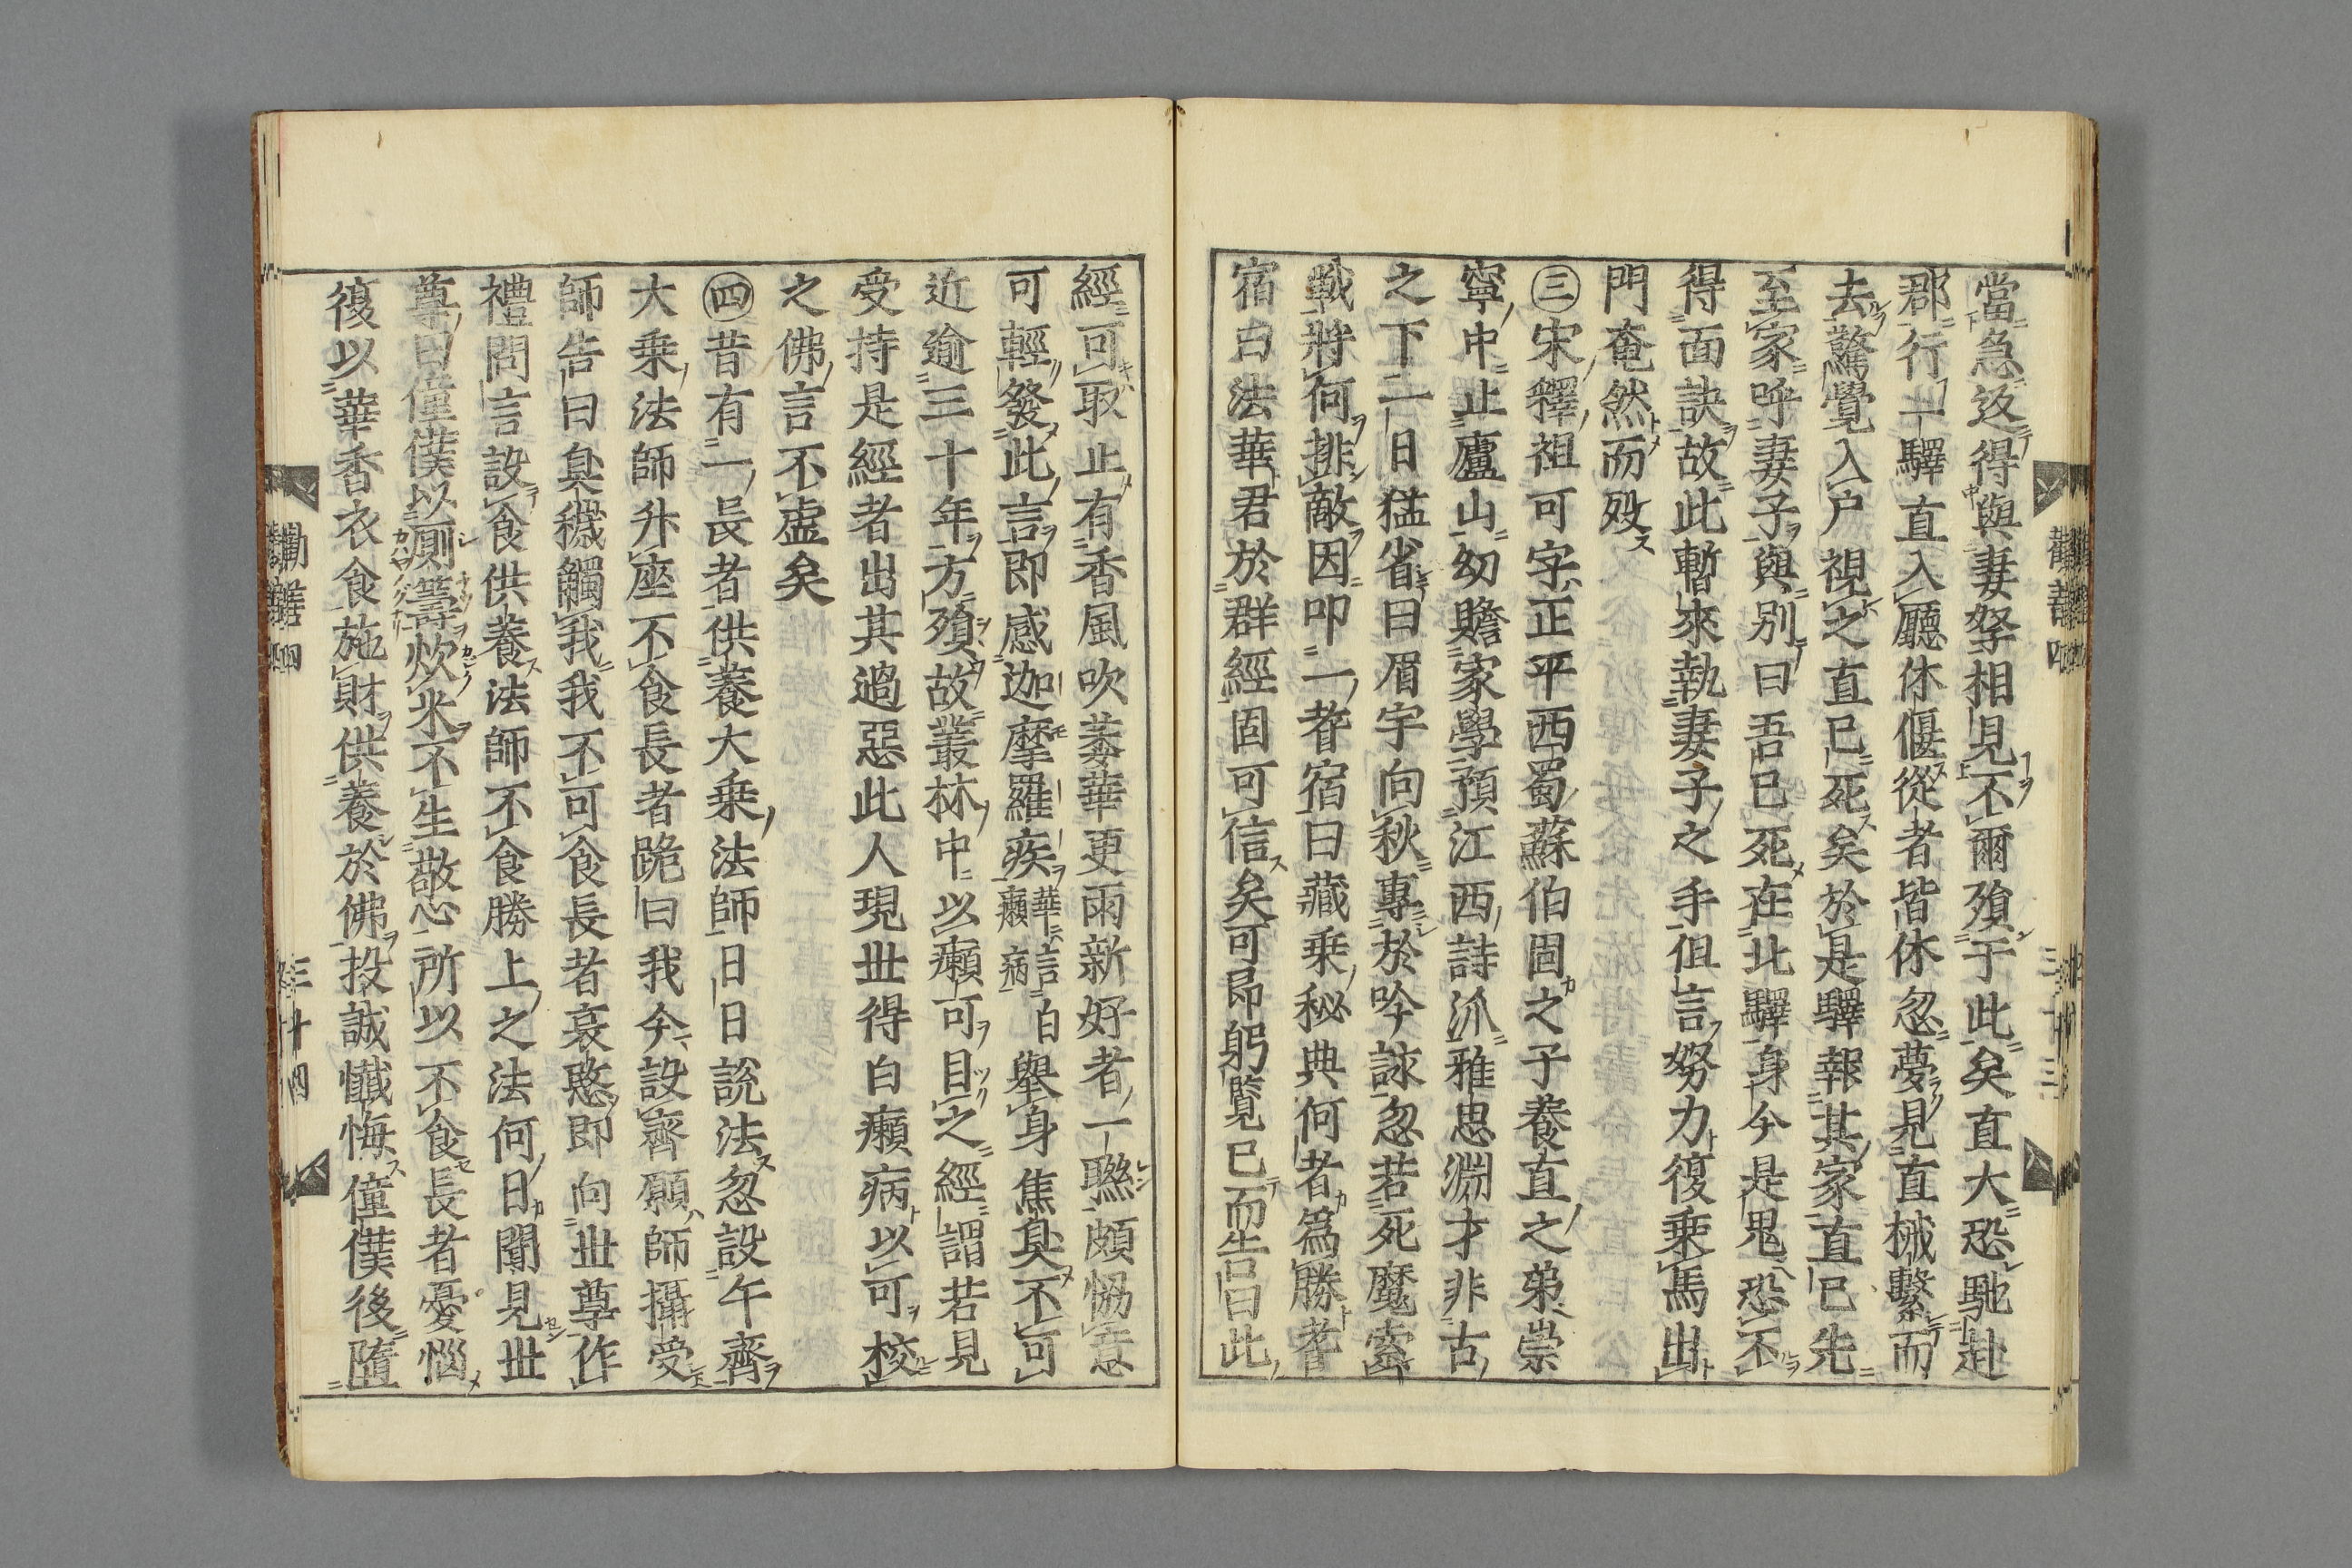 當急返得與妻孥相見不爾殞于此矣直大恐馳赴
郡行一驛直入廳休偃從者皆休忽夢見直械繫而
去驚覺入户視之直已死矣於是驛報其家直已先
至家呼妻子與別曰吾已死在此驛身今是鬼恐不
得面訣故此暫來執妻子之手但言努力復乗馬出
門奄然而歿
㊂宋釋祖可字正平西蜀蘇伯固之子養直之弟崇
寧中止廬山幼贍家學預江西詩泒雅思淵才非古
之下二日猛省曰眉宇向秋專於吟詠忽若死魔索
戰將何排敵因叩一耆宿曰藏乗秘典何者爲勝耆
宿白法華君於群經固可信矣可即躬覧已而告曰此
經可取止有香風吹萎華更雨新好者一聯頗恊意
可輕發此言即感迦摩羅疾華言白癩病舉身焦臭不可
近逾三十年方殞故叢林中以癩可目之經謂若見
受持是經者出其過惡此人現世得白癩病以可校
之佛言不虚矣
㊃昔有一長者供養大乗法師日日説法忽設午齋
大乗法師升座不食長者跪曰我今設齋願師攝受
師告曰臭穢觸我我不可食長者哀愍即向世尊作
禮問言設食供養法師不食勝上之法何日聞見世
尊曰僮僕以厠籌炊米不生敬心所以不食長者憂惱
復以華香衣食施財供養於佛投誠懺悔僮僕後墮
勸善四
三十四